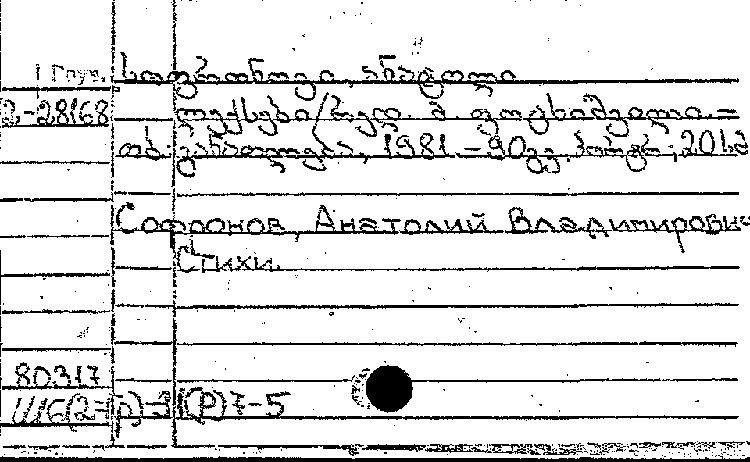 1 Груз. სოფრონოვი, ანატოლი
2-28168 ლექსები / რედ. მ. ფოცხიშვილი. –
თბ.: განათლება, 1981. – 90გვ. პორტრ.; 20სმ
Софронов, Анатолий Владимирович
Стихи.
80317
Ш6(2=Р)-5